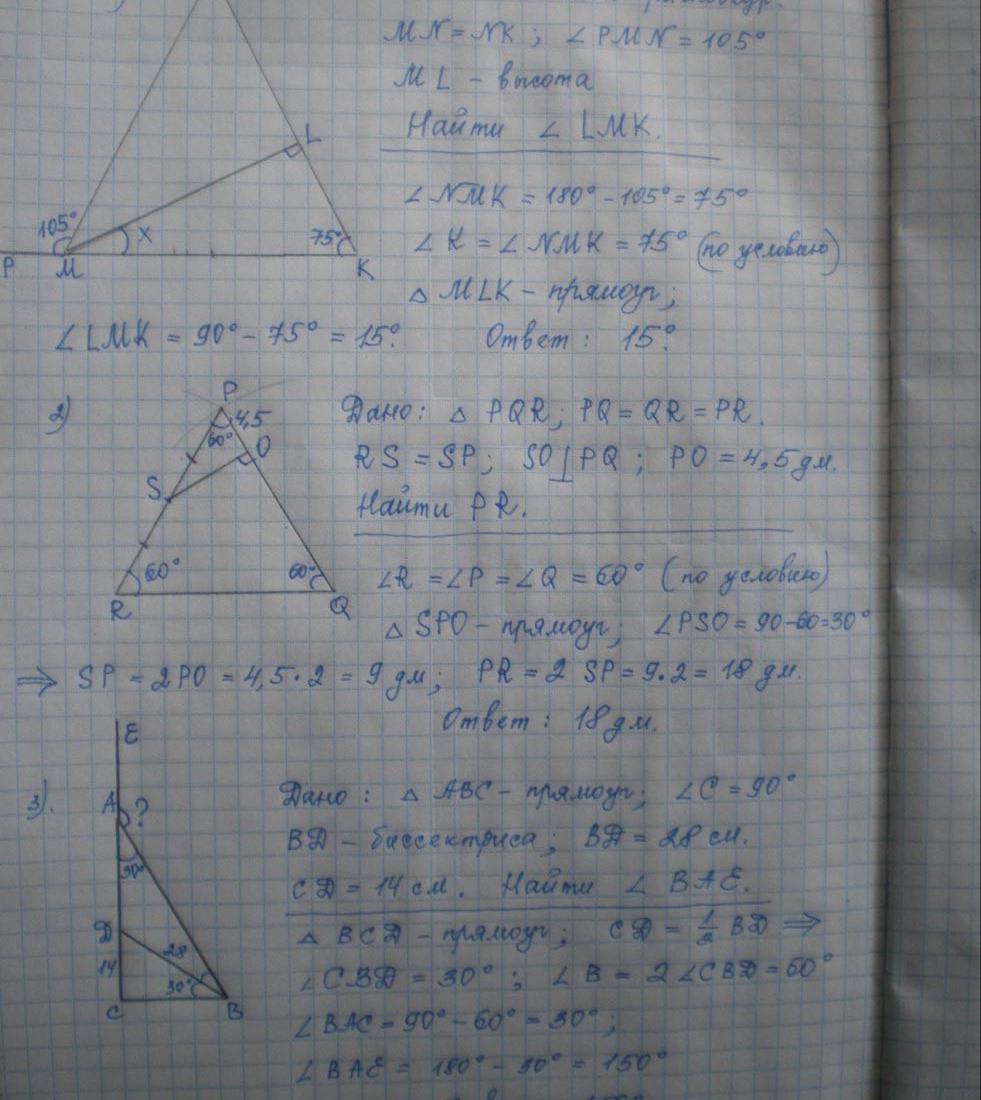 MN = NK ; ∠ PMN = 105°
ML – высота
Найти ∠ LMK.
∠ NMK = 180° – 105° = 75°
∠ K = ∠ NMK = 75° (по условию)
△ MLK – прямоуг;
∠ LMK = 90° – 75° = 15°. Ответ : 15°.
105° X 75° L
P M K
2) Дано: △ PQR; PQ = QR = PR.
RS = SP; SO ⊥ PQ ; PO = 4,5 дм.
Найти PR.
∠R = ∠P = ∠Q = 60° (по условию)
△ SPO – прямоуг; ∠PSO = 90-60=30°
⇒ SP = 2PO = 4,5 · 2 = 9 дм; PR = 2 SP = 9·2 = 18 дм.
Ответ : 18 дм.
P 4,5
60° O
S
60° 60°
R Q
3). Дано : △ ABC – прямоуг; ∠C = 90°
BD – биссектриса; BD = 28 см.
CD = 14 см. Найти ∠ BAE.
△ BCD – прямоуг; CD = 1/2 BD ⇒
∠CBD = 30° ; ∠B = 2∠CBD = 60°
∠BAC = 90° – 60° = 30° ;
∠BAE = 180° – 30° = 150°
E
A ?
30°
D 28
14 30°
C B